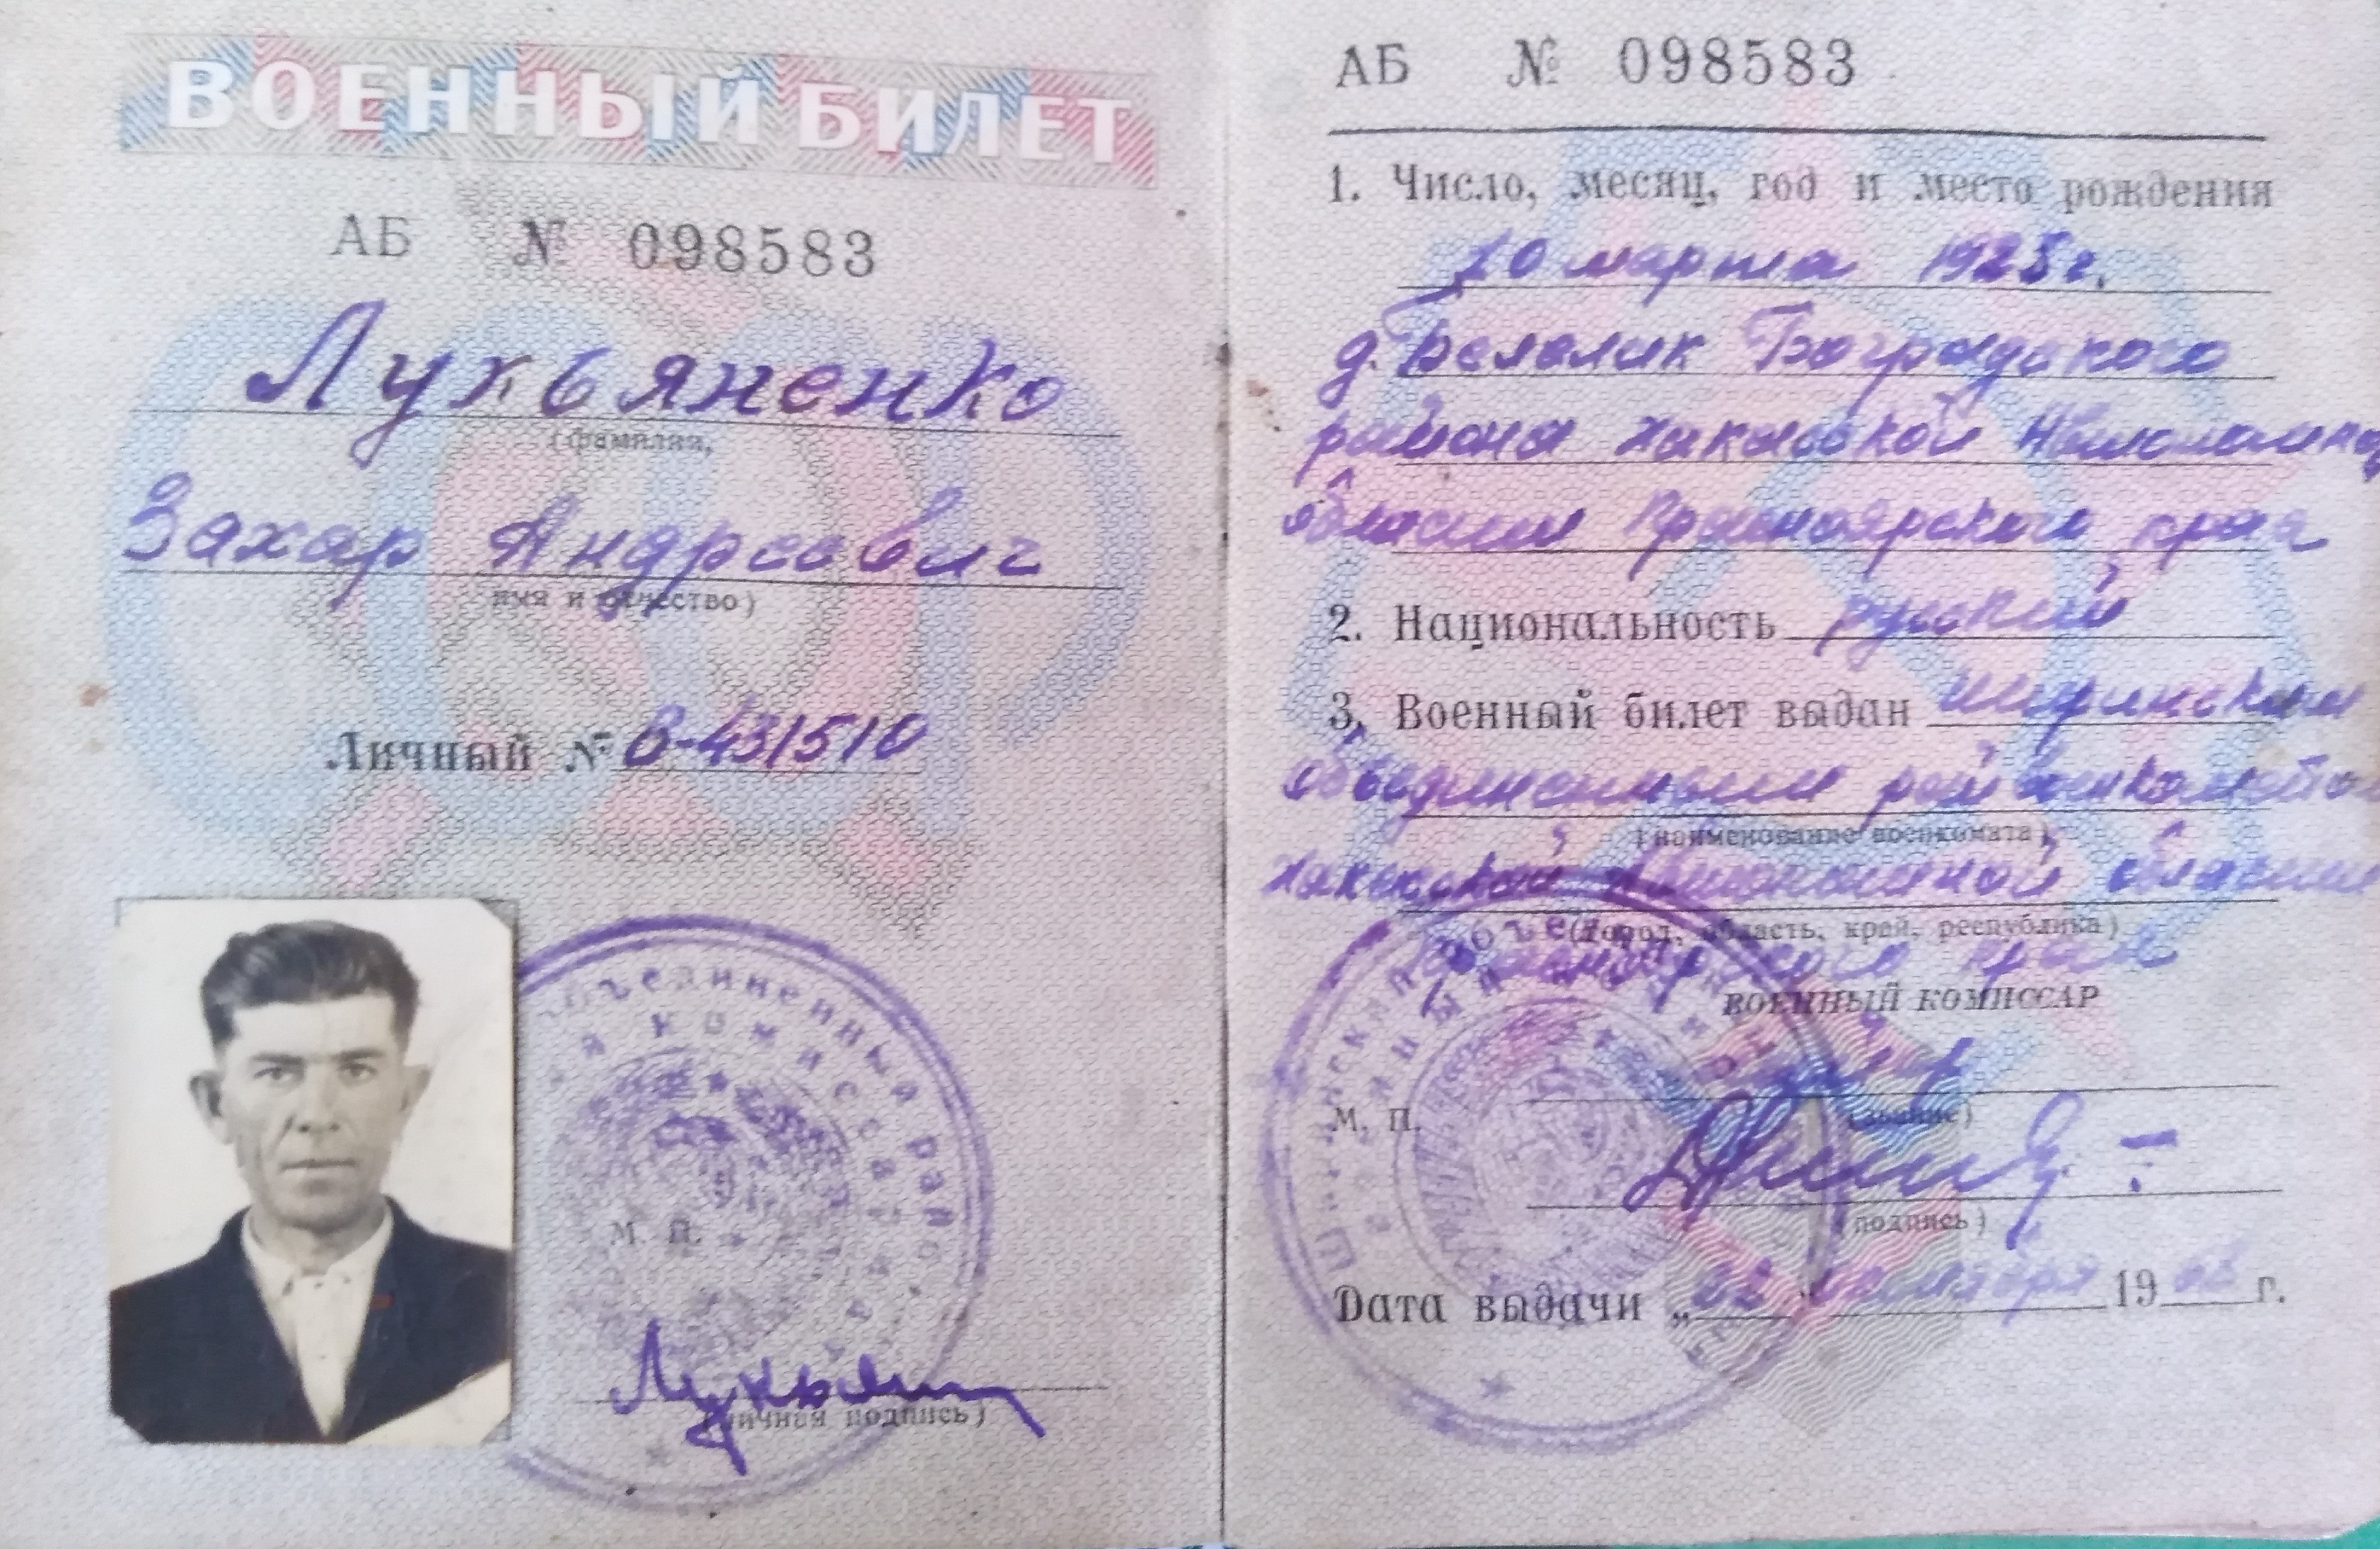 ВОЕННЫЙ БИЛЕТ
АБ № 098583
Лукьяненко
(фамилия,
Захар Андреевич
имя и отчество)
Личный № В-431510
М. П.
(личная подпись)
АБ № 098583
1. Число, месяц, год и место рождения
10 марта 1925 г.
д. Белелик Боградского
района Хакасской Автономной
области Красноярского края
2. Национальность русский
3. Военный билет выдан Ширинским
объединенным райвоенкоматом
(наименование военкомата)
Хакасской Автономной области
(город, область, край, республика)
Красноярского края
ВОЕННЫЙ КОМИССАР
М. П.
(звание)
(подпись)
Дата выдачи „ " 19 г.